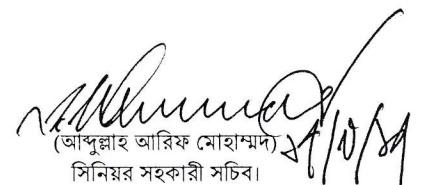 (আব্দুল্লাহ আরিফ মোহাম্মদ)
সিনিয়র সহকারী সচিব।